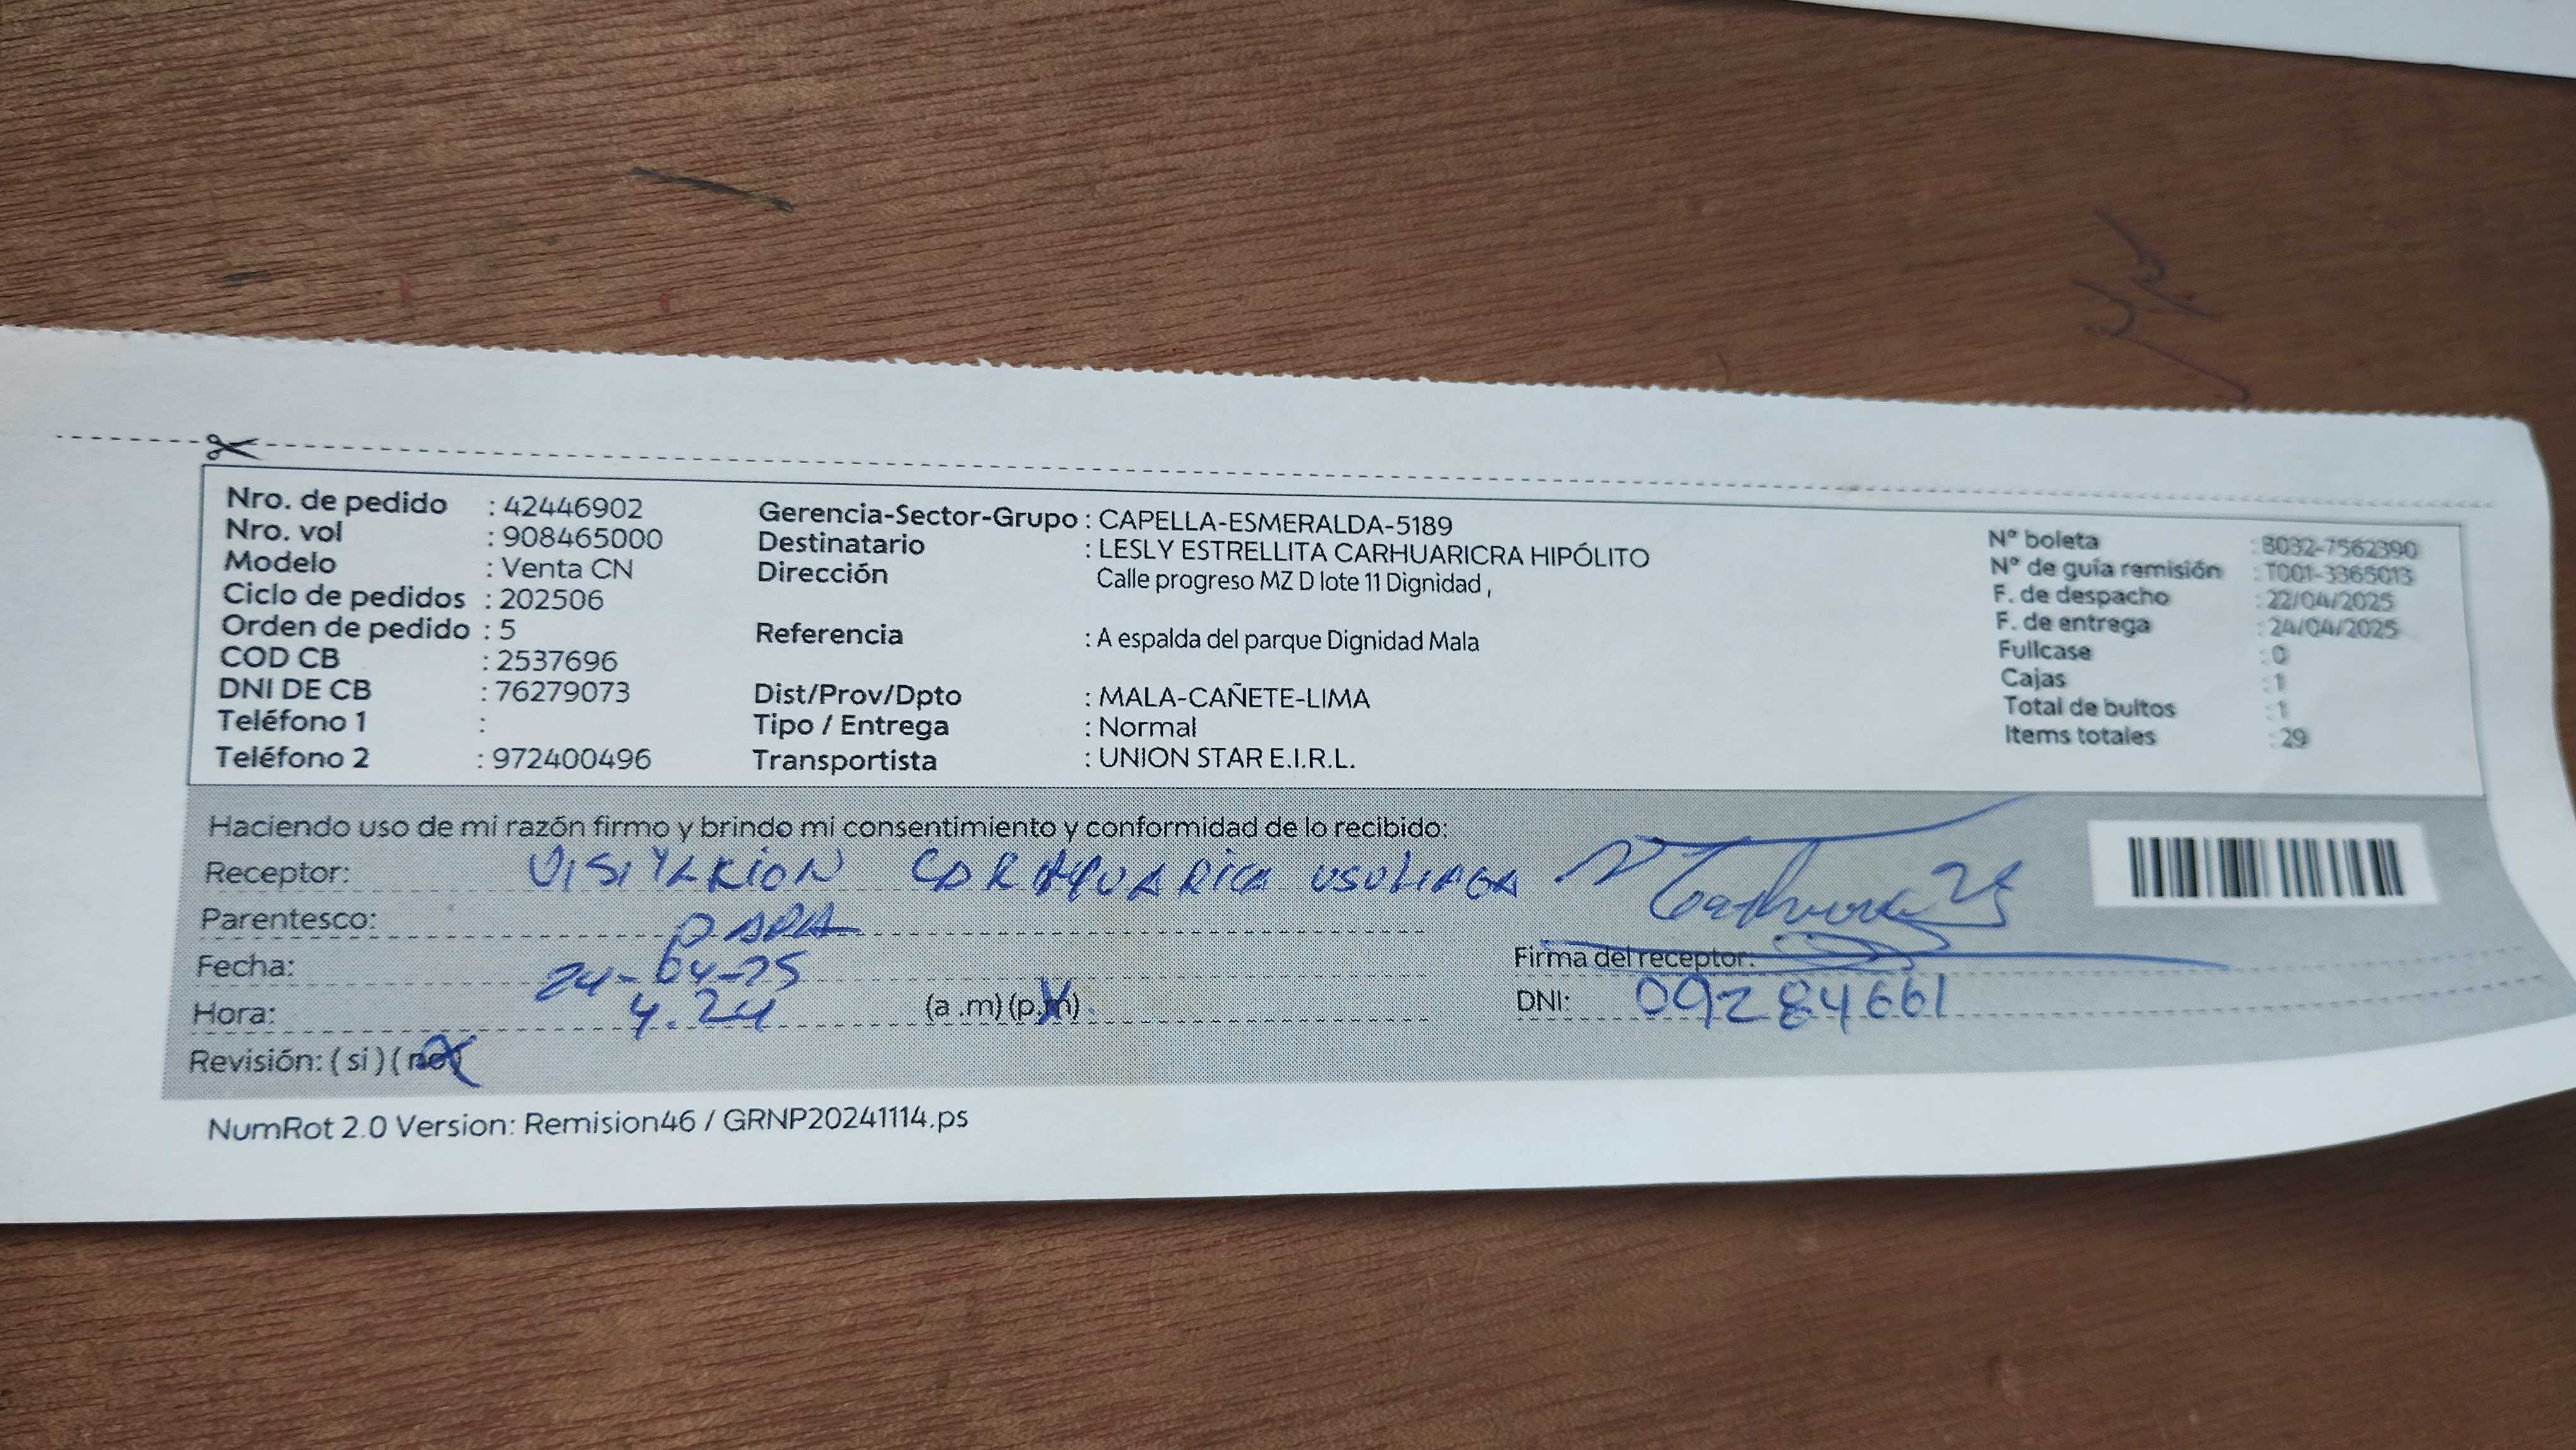 Nro. de pedido : 42446902
Nro. vol : 908465000
Modelo : Venta CN
Ciclo de pedidos : 202506
Orden de pedido : 5
COD CB : 2537696
DNI DE CB : 76279073
Teléfono 1 :
Teléfono 2 : 972400496
Gerencia-Sector-Grupo : CAPELLA-ESMERALDA-5189
Destinatario : LESLY ESTRELLITA CARHUARICRA HIPÓLITO
Dirección Calle progreso MZ D lote 11 Dignidad ,
Referencia : A espalda del parque Dignidad Mala
Dist/Prov/Dpto : MALA-CAÑETE-LIMA
Tipo / Entrega : Normal
Transportista : UNION STAR E.I.R.L.
Nº boleta : B032-7562390
Nº de guía remisión : T001-3365013
F. de despacho : 22/04/2025
F. de entrega : 24/04/2025
Fullcase : 0
Cajas : 1
Total de bultos : 1
Items totales : 29
Haciendo uso de mi razón firmo y brindo mi consentimiento y conformidad de lo recibido:
Receptor:
Parentesco: PAPA
Fecha: 24-04-25
Hora: 4.24 (a .m) (p.m) .
Revisión: ( si ) ( no )
Firma del receptor:
DNI: 09284661
NumRot 2.0 Version: Remision46 / GRNP20241114.ps